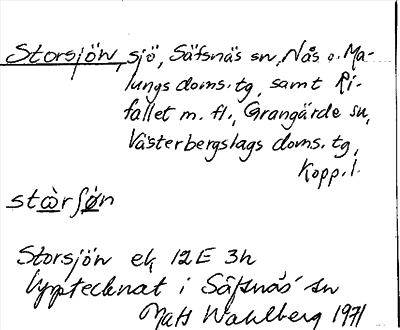 Storsjön, sjö, Säfsnäs sn, Nås o. Ma-
lungs doms. tg, samt Ri-
fallet m. fl., Grangärde sn,
Västerbergslags doms. tg,
Kopp. l.
stɷ̀rʃø̀n
Storsjön ek 12E 3h
Upptecknat i Säfsnäs sn
Mats Wahlberg 1971